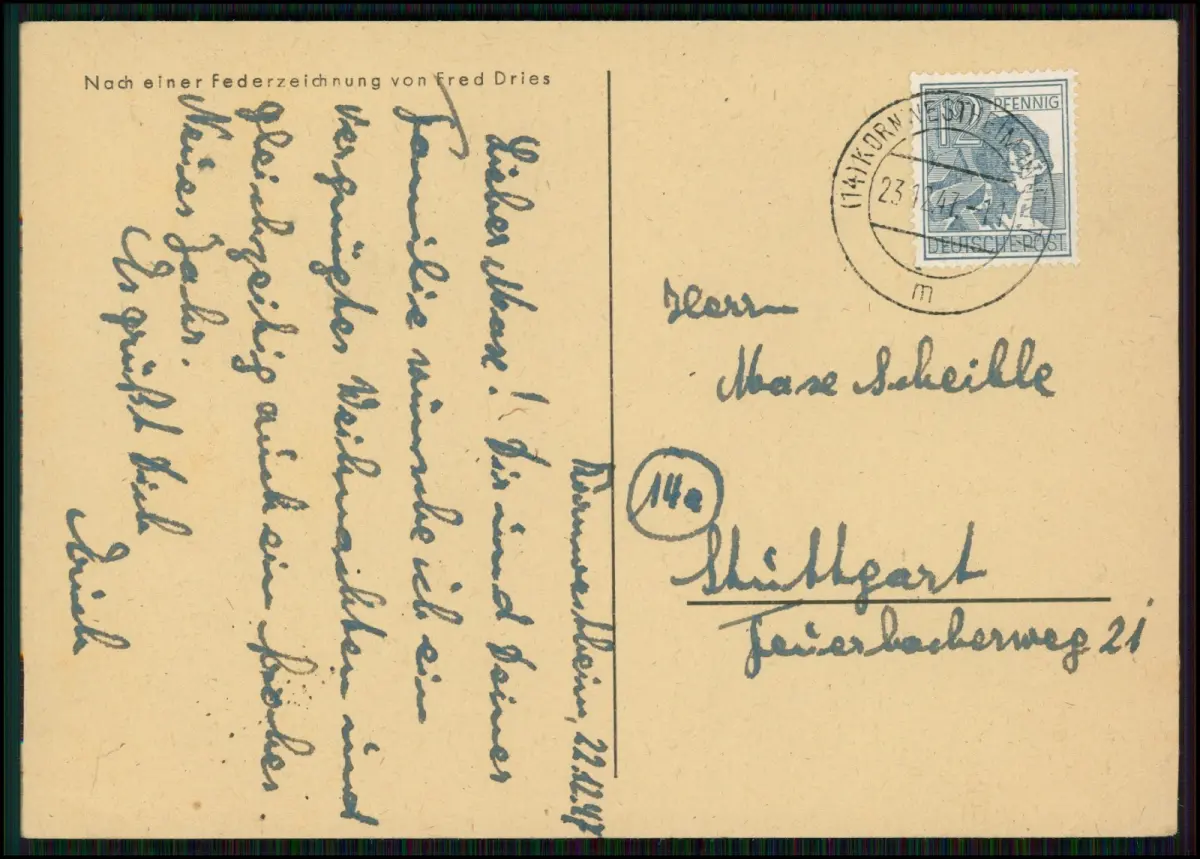 Nach einer Federzeichnung von Fred Dries
Kornwestheim, 22.12.47
Lieber Max! Dir und Deiner
Familie wünsche ich ein
vergnügtes Weihnachten und
gleichzeitig auch ein frohes
Neues Jahr.
Es grüßt Dich
Erich
12 PFENNIG
DEUTSCHE POST
(14) KORNWESTHEIM
23.12.47
m
Herrn
Max Scheible
14a
Stuttgart
Feuerbacherweg 21